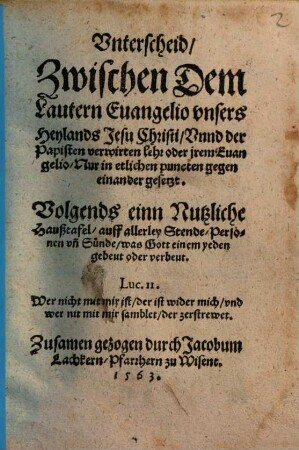 2
Vnterscheid/
Zwischen Dem
Lautern Euangelio vnsers
Heylands Jesu Christi/ Vnnd der
Papisten verwirten lehr oder jrem Euan
gelio/ Nur in etlichen puncten gegen
einander gesetzt.
Volgends einn Nutzliche
Haußtafel/ auff allerley Stende/ Perso⸗
nen vñ Sünde/ was Gott einem yeden
gebeut oder verbeut.
Luc. 11.
Wer nicht mit mir ist/ der ist wider mich/ vnd
wer nit mit mir samblet/ der zerstrewet.
Zusamen gezogen durch Jacobum
Lachkern/ Pfarrhern zu Wisent.
1563.